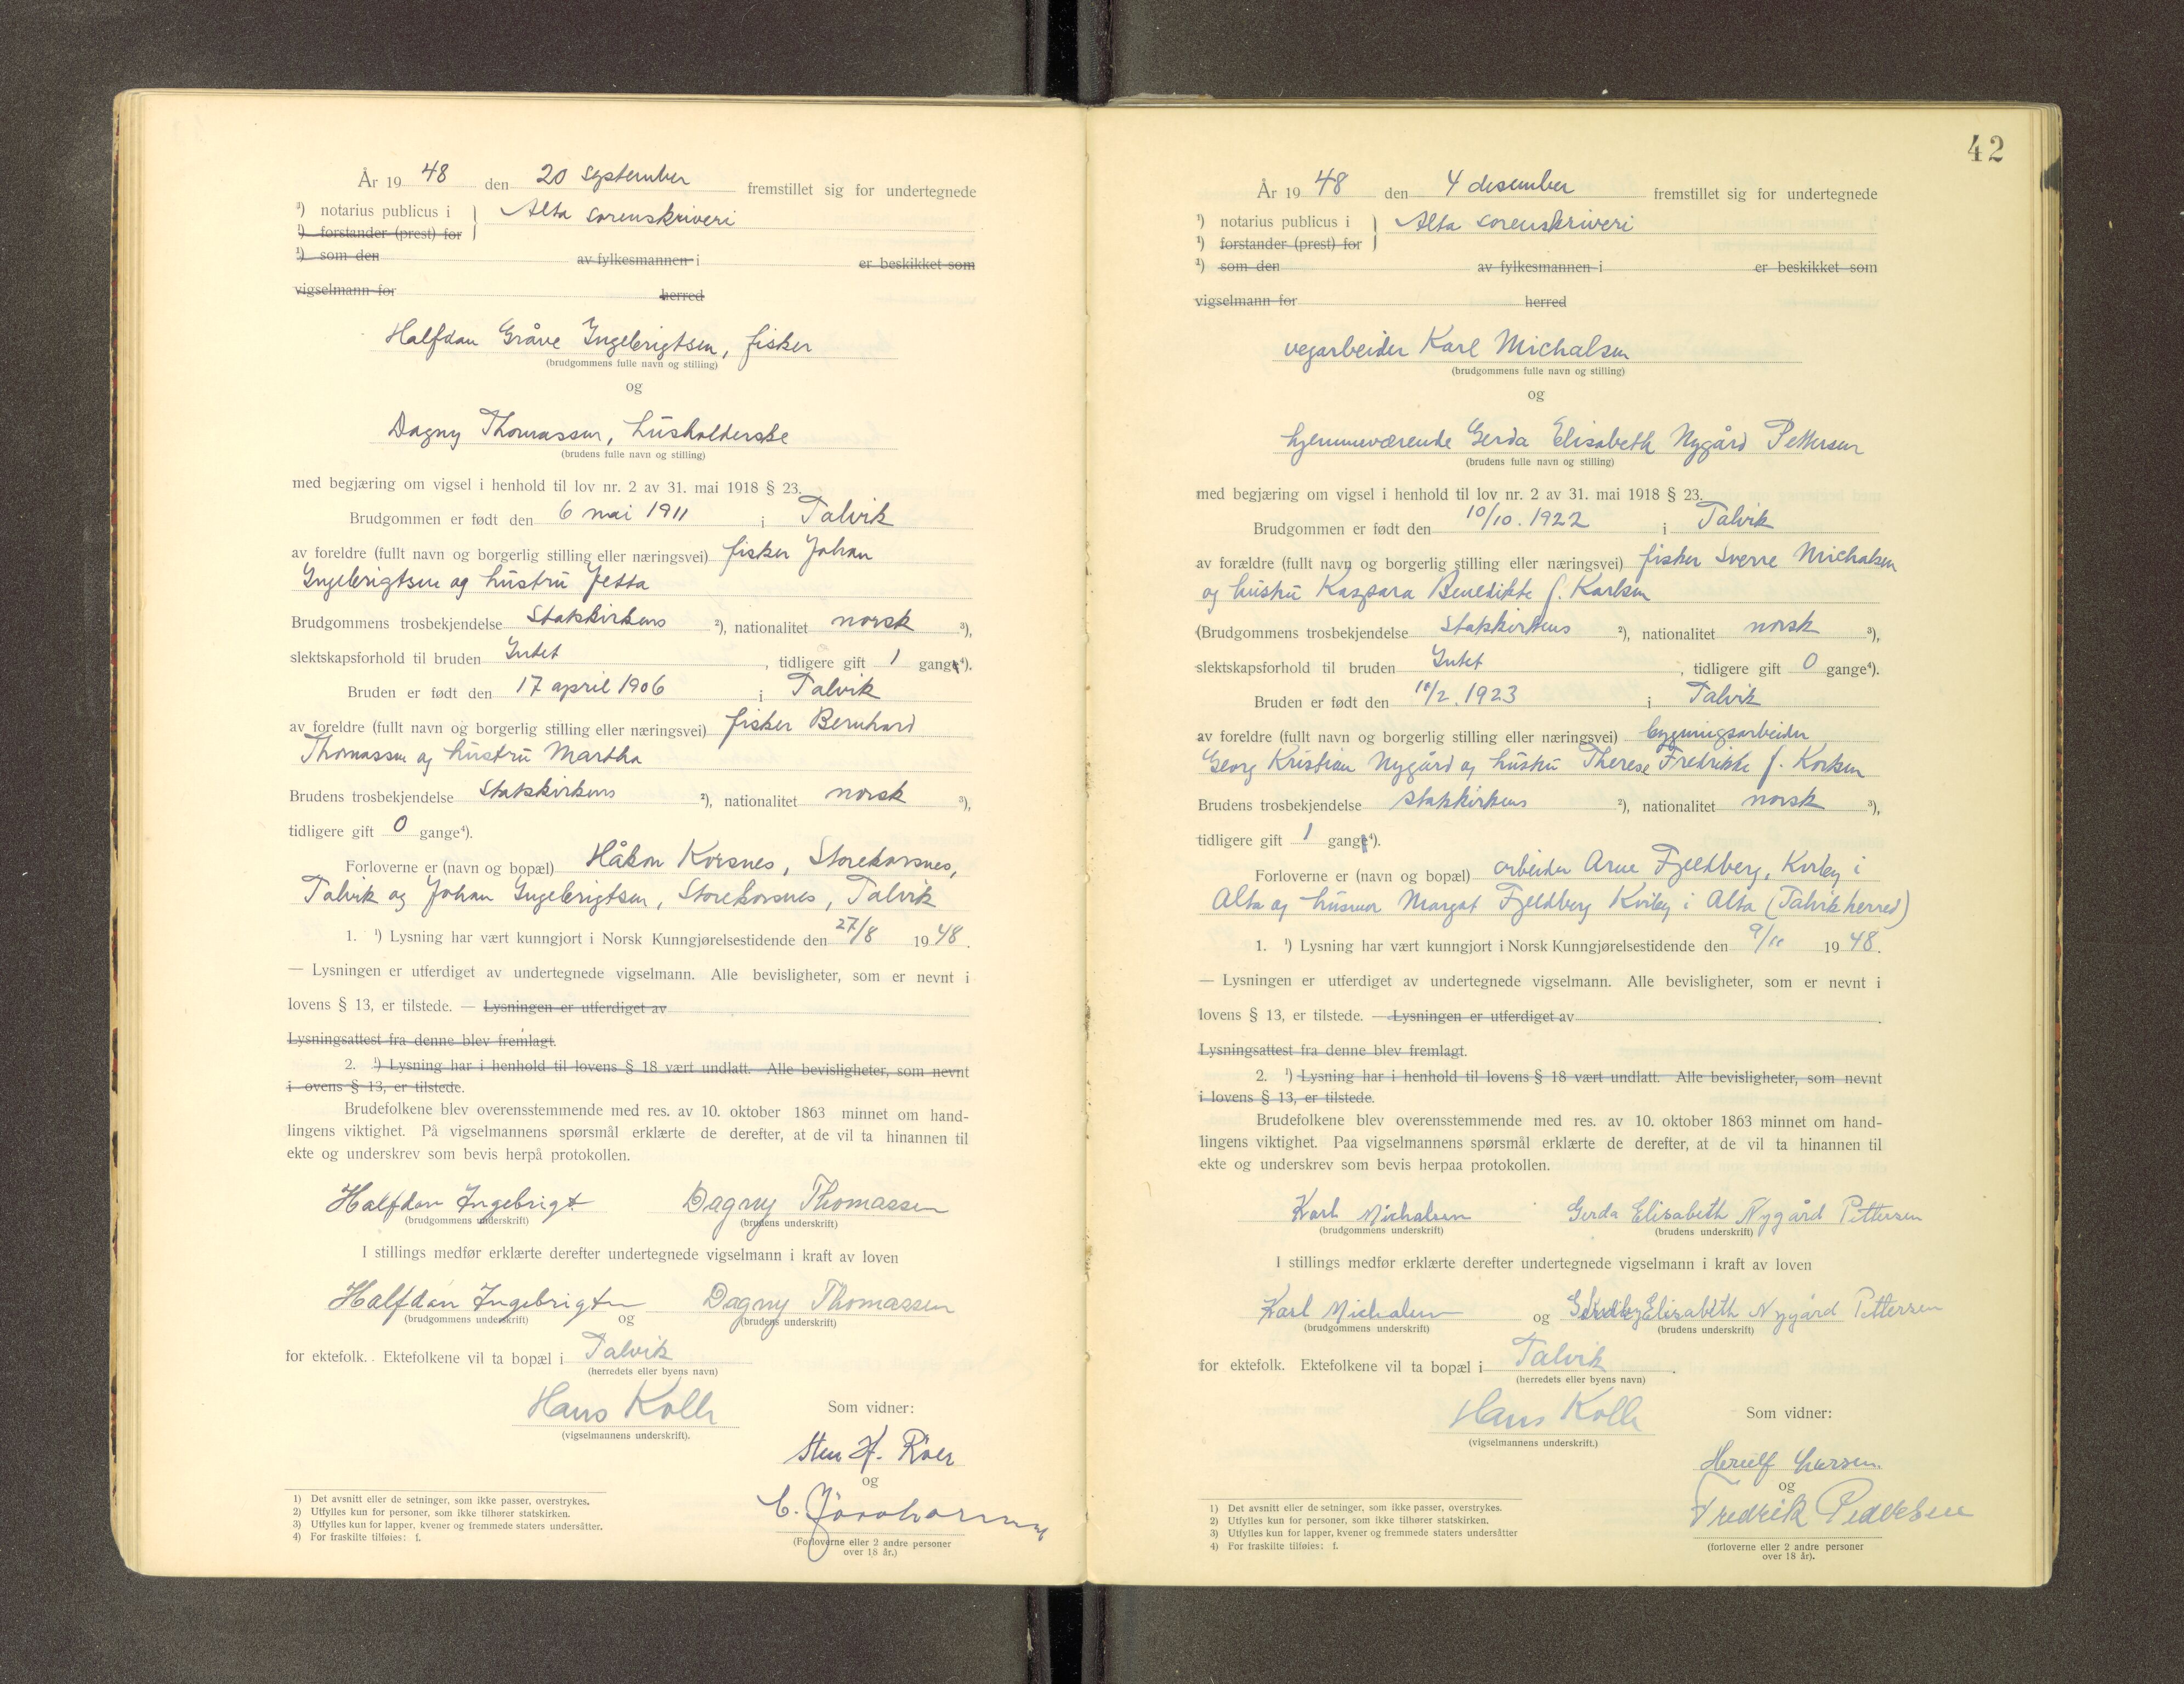 År 19 48 den 20 september fremstillet sig for undertegnede
¹) notarius publicus i } Alta sorenskriveri
¹) forstander (prest) for
¹) som den av fylkesmannen i er beskikket som
vigselmann for herred
Halfdan Gråve Ingebrigtsen, fisker
(brudgommens fulle navn og stilling)
og
Dagny Thomassen, husholderske
(brudens fulle navn og stilling)
med begjæring om vigsel i henhold til lov nr. 2 av 31. mai 1918 § 23.
Brudgommen er født den 6 mai 1911 i Talvik
av foreldre (fullt navn og borgerlig stilling eller næringsvei) fisker Johan
Ingebrigtsen og hustru Jetta
Brudgommens trosbekjendelse Statskirkens ²), nationalitet norsk ³),
slektskapsforhold til bruden Intet , tidligere gift 1 gange⁴).
Bruden er født den 17 april 1906 i Talvik
av foreldre (fullt navn og borgerlig stilling eller næringsvei) fisker Bernhard
Thomassen og hustru Martha
Brudens trosbekjendelse Statskirkens ²), nationalitet norsk ³),
tidligere gift 0 gange⁴).
Forloverne er (navn og bopæl) Håkon Korsnes, Storekorsnes,
Talvik og Johan Ingebrigtsen, Storekorsnes, Talvik
1. ¹) Lysning har vært kunngjort i Norsk Kunngjørelsestidende den 27/8 19 48.
— Lysningen er utferdiget av undertegnede vigselmann. Alle bevisligheter, som er nevnt i
lovens § 13, er tilstede. — Lysningen er utferdiget av
Lysningsattest fra denne blev fremlagt.
2. ¹) Lysning har i henhold til lovens § 18 vært undlatt. Alle bevisligheter, som nevnt
i ovens § 13, er tilstede.
Brudefolkene blev overensstemmende med res. av 10. oktober 1863 minnet om hand-
lingens viktighet. På vigselmannens spørsmål erklærte de derefter, at de vil ta hinannen til
ekte og underskrev som bevis herpå protokollen.
Halfdan Ingebrigt Dagny Thomassen
(brudgommens underskrift) (brudens underskrift)
I stillings medfør erklærte derefter undertegnede vigselmann i kraft av loven
Halfdan Ingebrigtsen og Dagny Thomassen
(brudgommens underskrift) (brudens underskrift)
for ektefolk. Ektefolkene vil ta bopæl i Talvik
(herredets eller byens navn)
Hans Kolle Som vidner:
(vigselmannens underskrift).
Sten H. Röer
og
(Forloverne eller 2 andre personer
over 18 år.)
1) Det avsnitt eller de setninger, som ikke passer, overstrykes.
2) Utfylles kun for personer, som ikke tilhører statskirken.
3) Utfylles kun for lapper, kvener og fremmede staters undersåtter.
4) For fraskilte tilføies: f.
42
År 19 48 den 4 desember fremstillet sig for undertegnede
¹) notarius publicus i } Alta sorenskriveri
¹) forstander (prest) for
¹) som den av fylkesmannen i er beskikket som
vigselmann for herred
vegarbeider Karl Michalsen
(brudgommens fulle navn og stilling)
og
hjemmeværende Gerda Elisabeth Nygård Pettersen
(brudens fulle navn og stilling)
med begjæring om vigsel i henhold til lov nr. 2 av 31. mai 1918 § 23.
Brudgommen er født den 10/10. 1922 i Talvik
av forældre (fullt navn og borgerlig stilling eller næringsvei) fisker Sverre Michalsen
og hustru Kaspara Benedikte f. Karlsen
(Brudgommens trosbekjendelse Statskirkens ²), nationalitet norsk ³),
slektskapsforhold til bruden Intet , tidligere gift 0 gange⁴).
Bruden er født den 10/2. 1923 i Talvik
av foreldre (fullt navn og borgerlig stilling eller næringsvei) bygningsarbeider
Georg Kristian Nygård og hustru Therese Fredrikke f.
Brudens trosbekjendelse Statskirkens ²), nationalitet norsk ³),
tidligere gift 1 gange⁴).
Forloverne er (navn og bopæl) arbeider Arne Fjeldberg, Kviby i
Alta og husmor Margot Fjeldberg Kviby i Alta (Talvik herred)
1. ¹) Lysning har vært kunngjort i Norsk Kunngjørelsestidende den 9/11 19 48.
— Lysningen er utferdiget av undertegnede vigselmann. Alle bevisligheter, som er nevnt i
lovens § 13, er tilstede. — Lysningen er utferdiget av
Lysningsattest fra denne blev fremlagt.
2. ¹) Lysning har i henhold til lovens § 18 vært undlatt. Alle bevisligheter, som nevnt
i lovens § 13, er tilstede.
Brudefolkene blev overensstemmende med res. av 10. oktober 1863 minnet om hand-
lingens viktighet. Paa vigselmannens spørsmål erklærte de derefter, at de vil ta hinannen til
ekte og underskrev som bevis herpaa protokollen.
Karl Michalsen Gerda Elisabeth Nygård Pettersen
(brudgommens underskrift) (brudens underskrift)
I stillings medfør erklærte derefter undertegnede vigselmann i kraft av loven
Karl Michalsen og Gerda Elisabeth Nygård Pettersen
(brudgommens underskrift) (brudens underskrift)
for ektefolk. Ektefolkene vil ta bopæl i Talvik
(herredets eller byens navn)
Hans Kolle Som vidner:
(vigselmannens underskrift.)
Herulf Larsen.
og
Fredrik Pedersen
(forloverne eller 2 andre personer
over 18 år).
1) Det avsnitt eller de setninger, som ikke passer, overstrykes.
2) Utfylles kun for personer, som ikke tilhører statskirken.
3) Utfylles kun for lapper, kvener og fremmede staters undersåtter
4) For fraskilte tilføies: f.